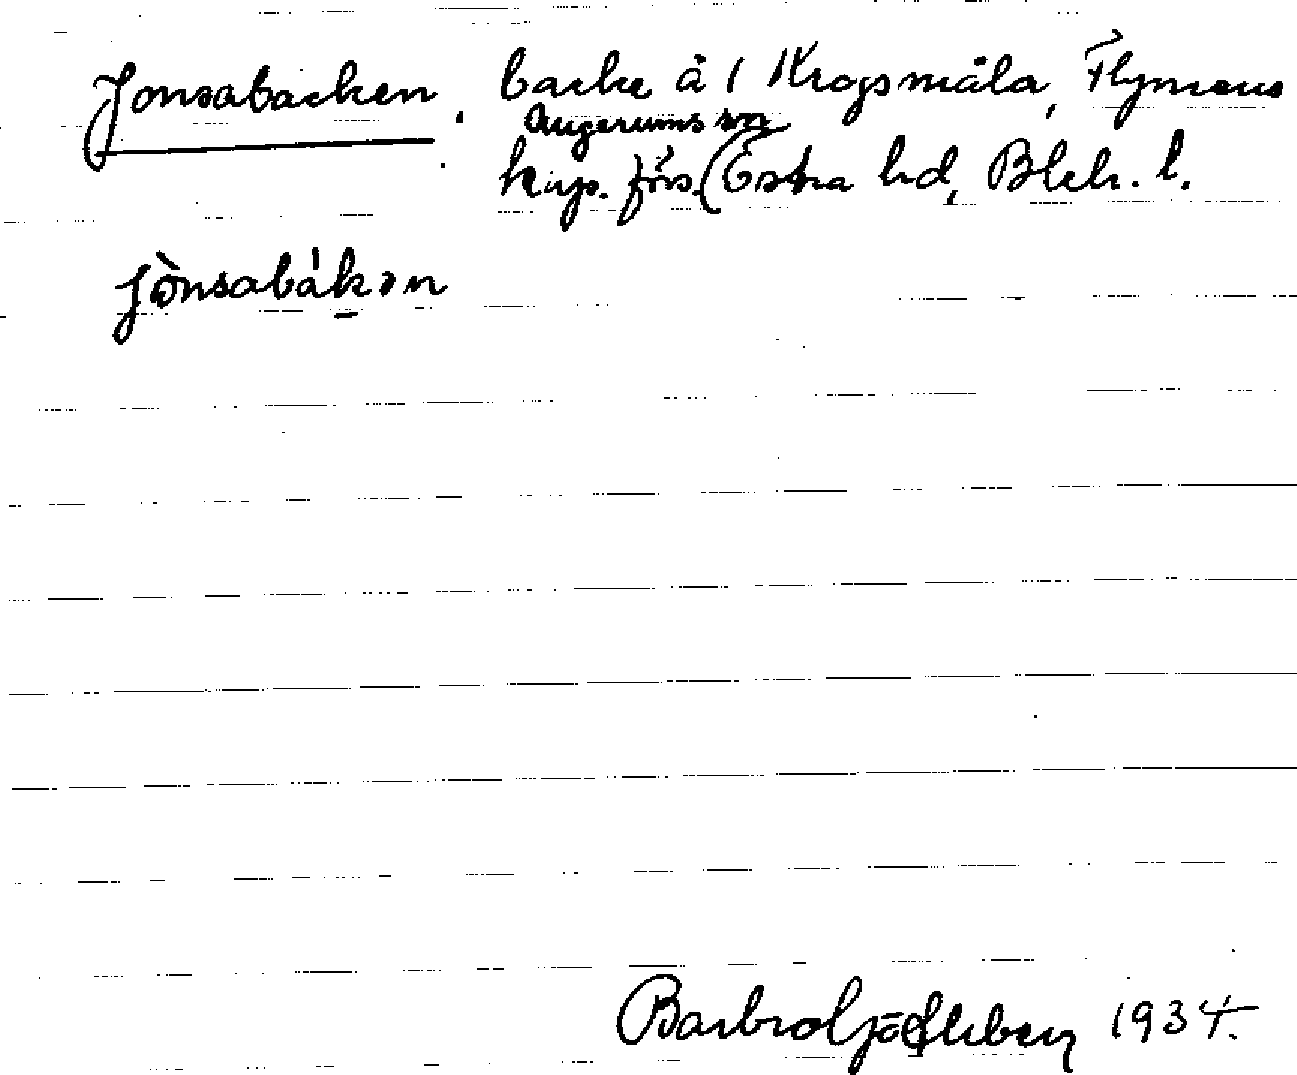 Jonsabacken, backe å 1 Krogsmåla, Flymens
Augerums sn
kap. förs. (Östra hd, Blek. l.
Jònsabákən
Barbro 1934.